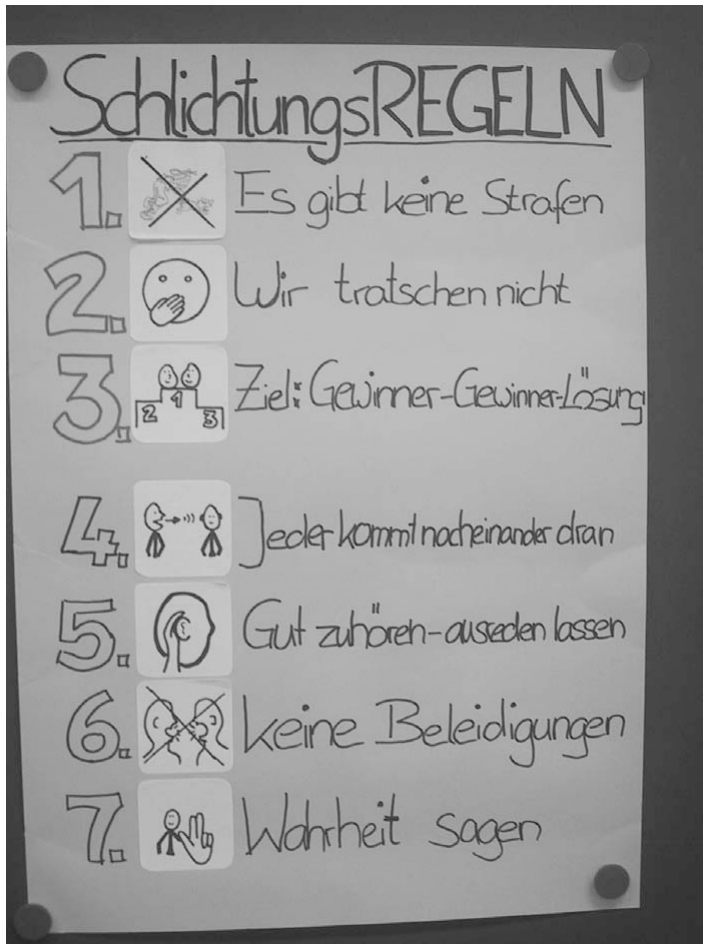 SchlichtungsREGELN
1. Es gibt keine Strafen
2. Wir tratschen nicht
3. 2 1 3 Ziel: Gewinner-Gewinner-Lösung
4. Jeder kommt nacheinander dran
5. Gut zuhören - ausreden lassen
6. keine Beleidigungen
7. Wahrheit sagen